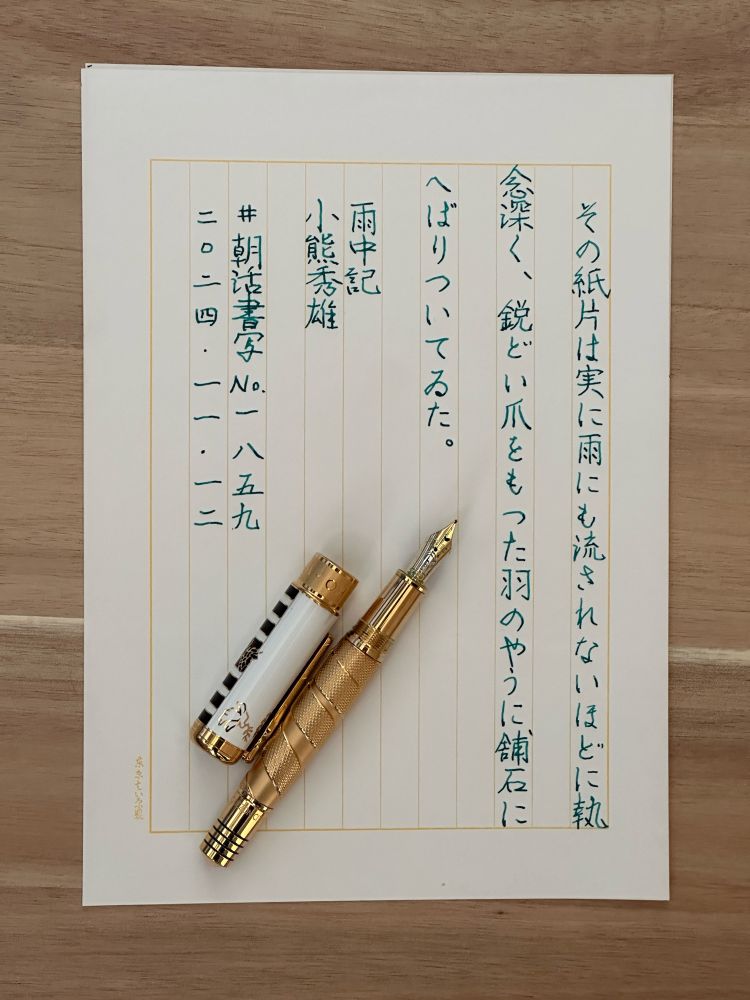 その紙片は実に雨にも流されないほどに執
念深く、鋭どい爪をもつた羽のやうに舗石に
へばりついてゐた。
雨中記
小熊秀雄
#朝活書写No.一八五九
二〇二四・一一・一二